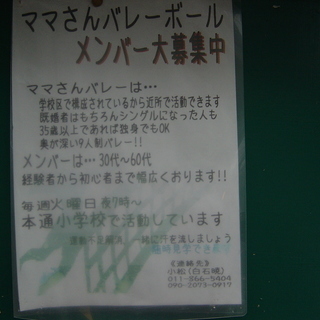 ママさんバレーボール
メンバー大募集中
ママさんバレーは…
学校区で構成されているから近所で活動できます
既婚者はもちろんシングルになった人も
35歳以上であれば独身でもOK
奥が深い9人制バレー!!
メンバーは…30代～60代
経験者から初心者まで幅広くおります!!
毎週火曜日 夜7時～
本通小学校で活動しています
運動不足解消 一緒に汗を流しましょう
随時見学できます
《連絡先》
小松(白石 )
011-866-5404
090-2073-0917